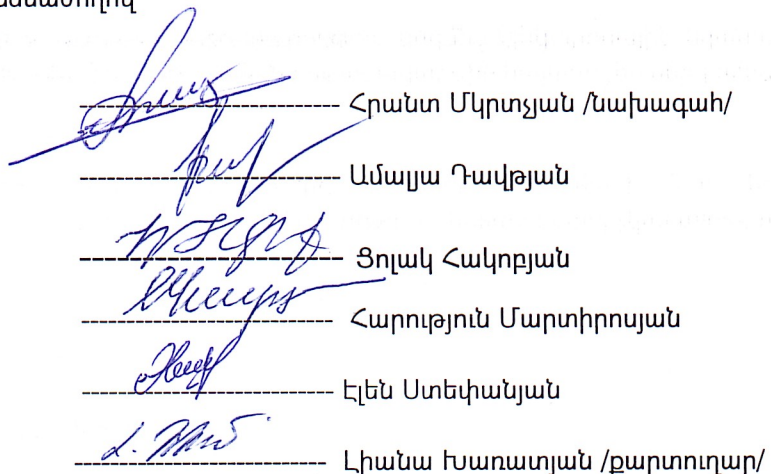 Հրանտ Մկրտչյան /նախագահ/
Ամալյա Դավթյան
Ցոլակ Հակոբյան
Հարություն Մարտիրոսյան
Էլեն Ստեփանյան
Լիանա Խառատյան /քարտուղար/